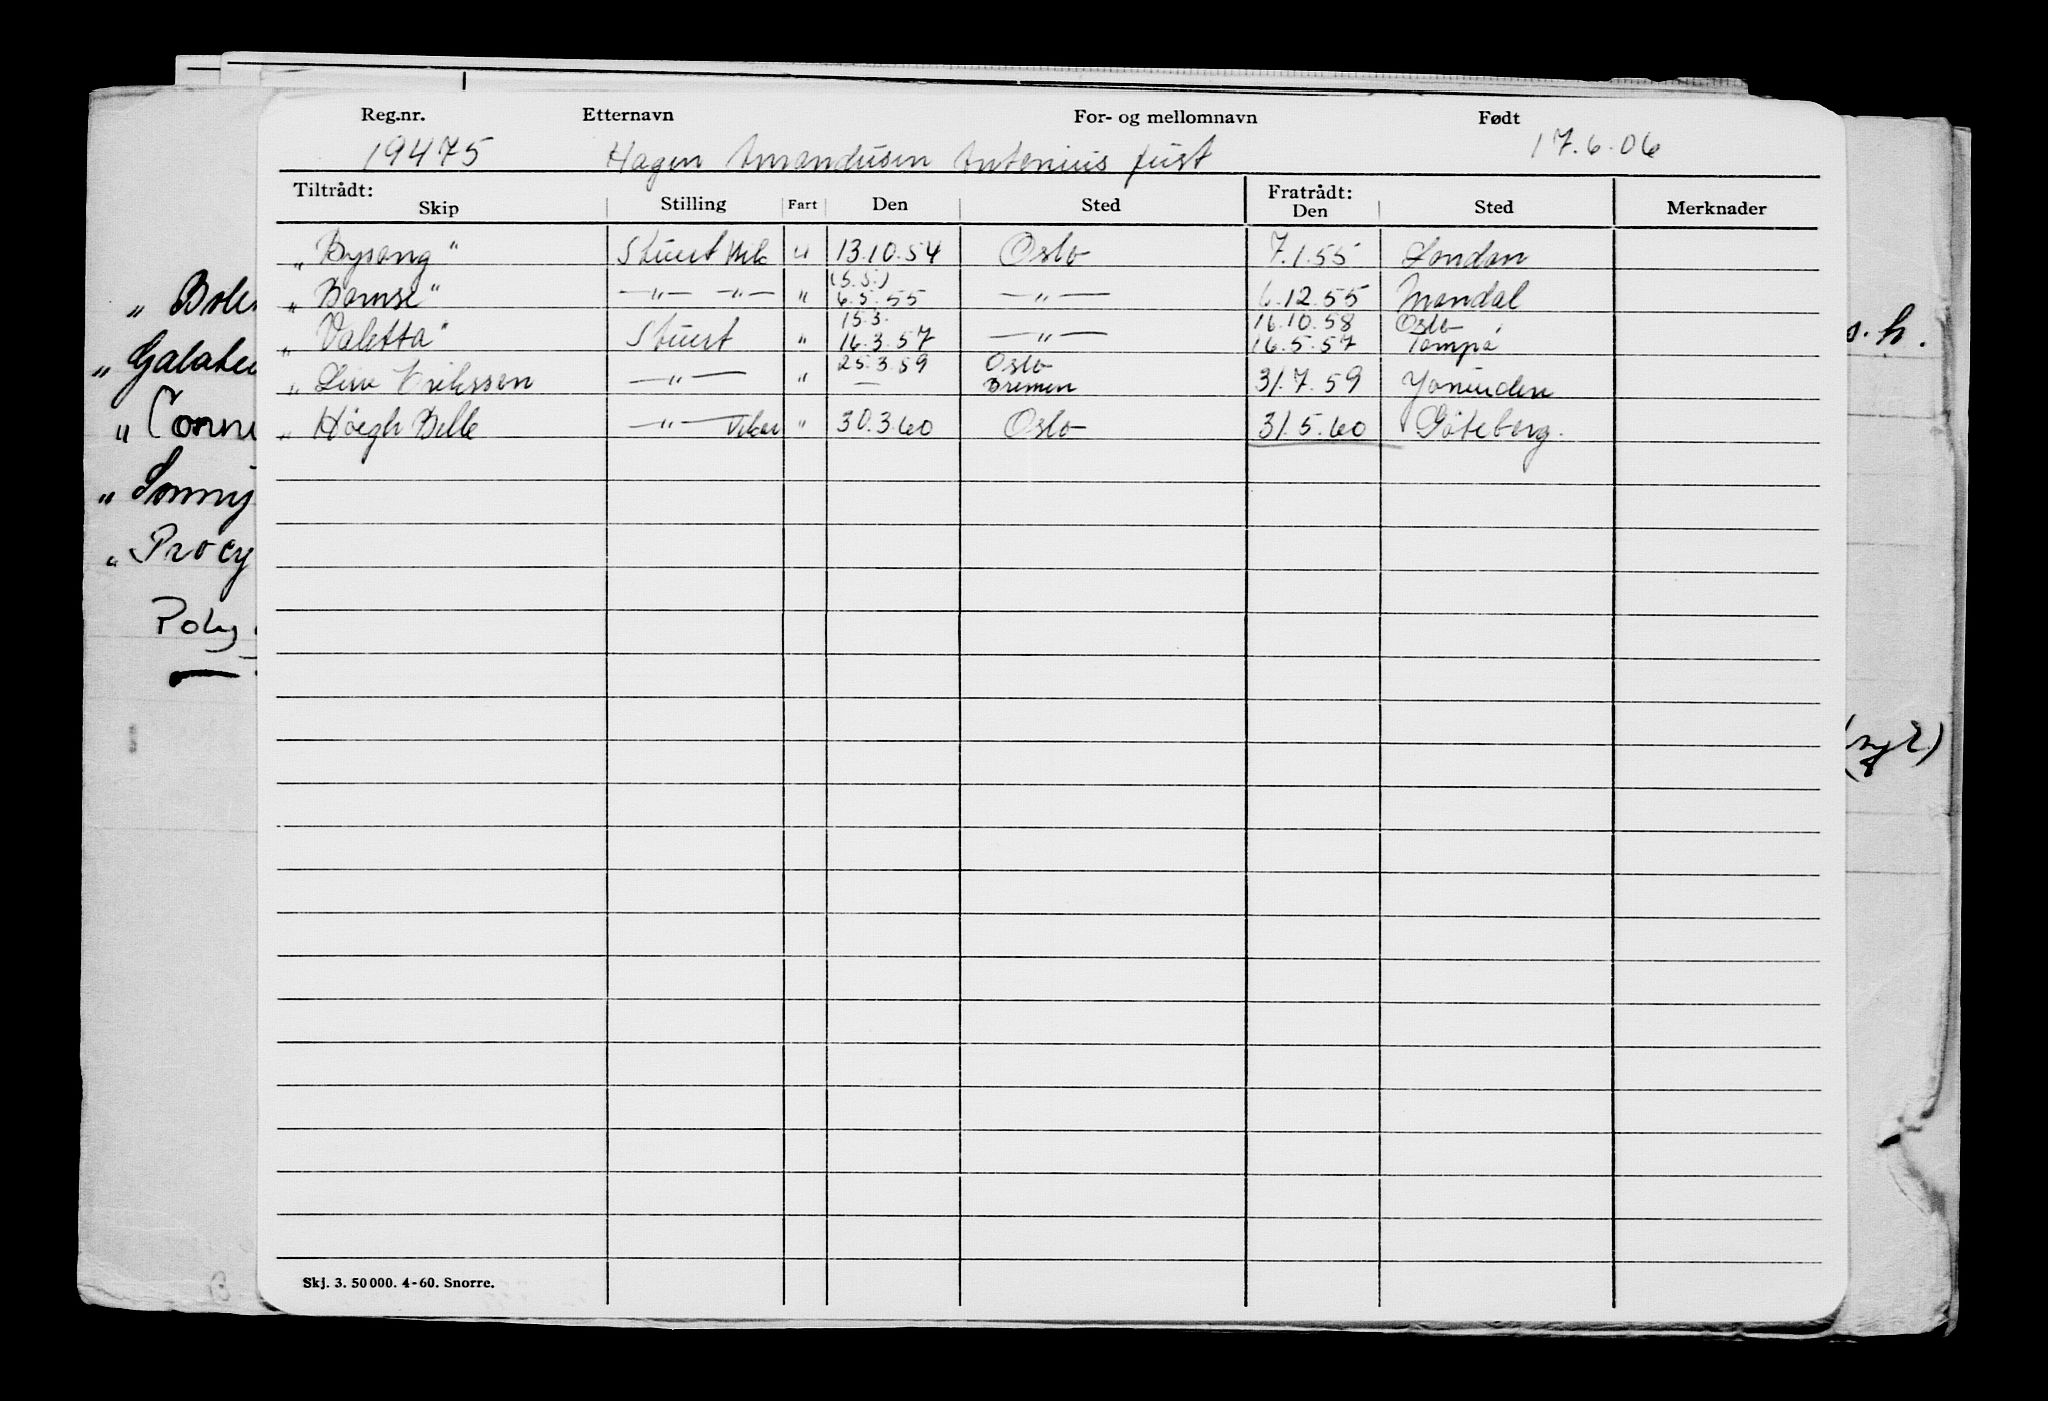 Reg.nr. Etternavn For- og mellomnavn Født
19475 Hagen Amandusen Antonius Just 17.6.06
Tiltrådt: Fratrådt:
Skip Stilling Fart Den Sted Den Sted Merknader
„ Bysang " Stuert " 13.10.54 Oslo 7.1.55 London
(5.5.)
„ Bamse " —"— —"— " 6.5.55 —"— 6.12.55 Mandal
15.3. 16.10.58 Oslo
„ Valetta " Stuert " 16.3.57 —"— 16.5.57 Tampa
25.3.59 Oslo
„ Leiv Eriksson —"— " — Bremen 31.7.59 Ymuiden
„ Høegh Belle —"— Vikar " 30.3.60 Oslo 31.5.60 Göteborg.
„ Gala
„ Conn
„ Sonny
„ Procy
Poly
s. h.
Skj. 3. 50 000. 4-60. Snorre.